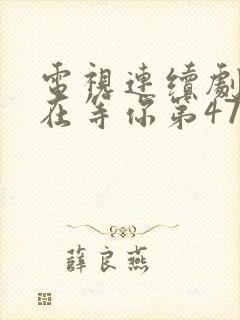 電視連續劇
在等你第47
薛良燕